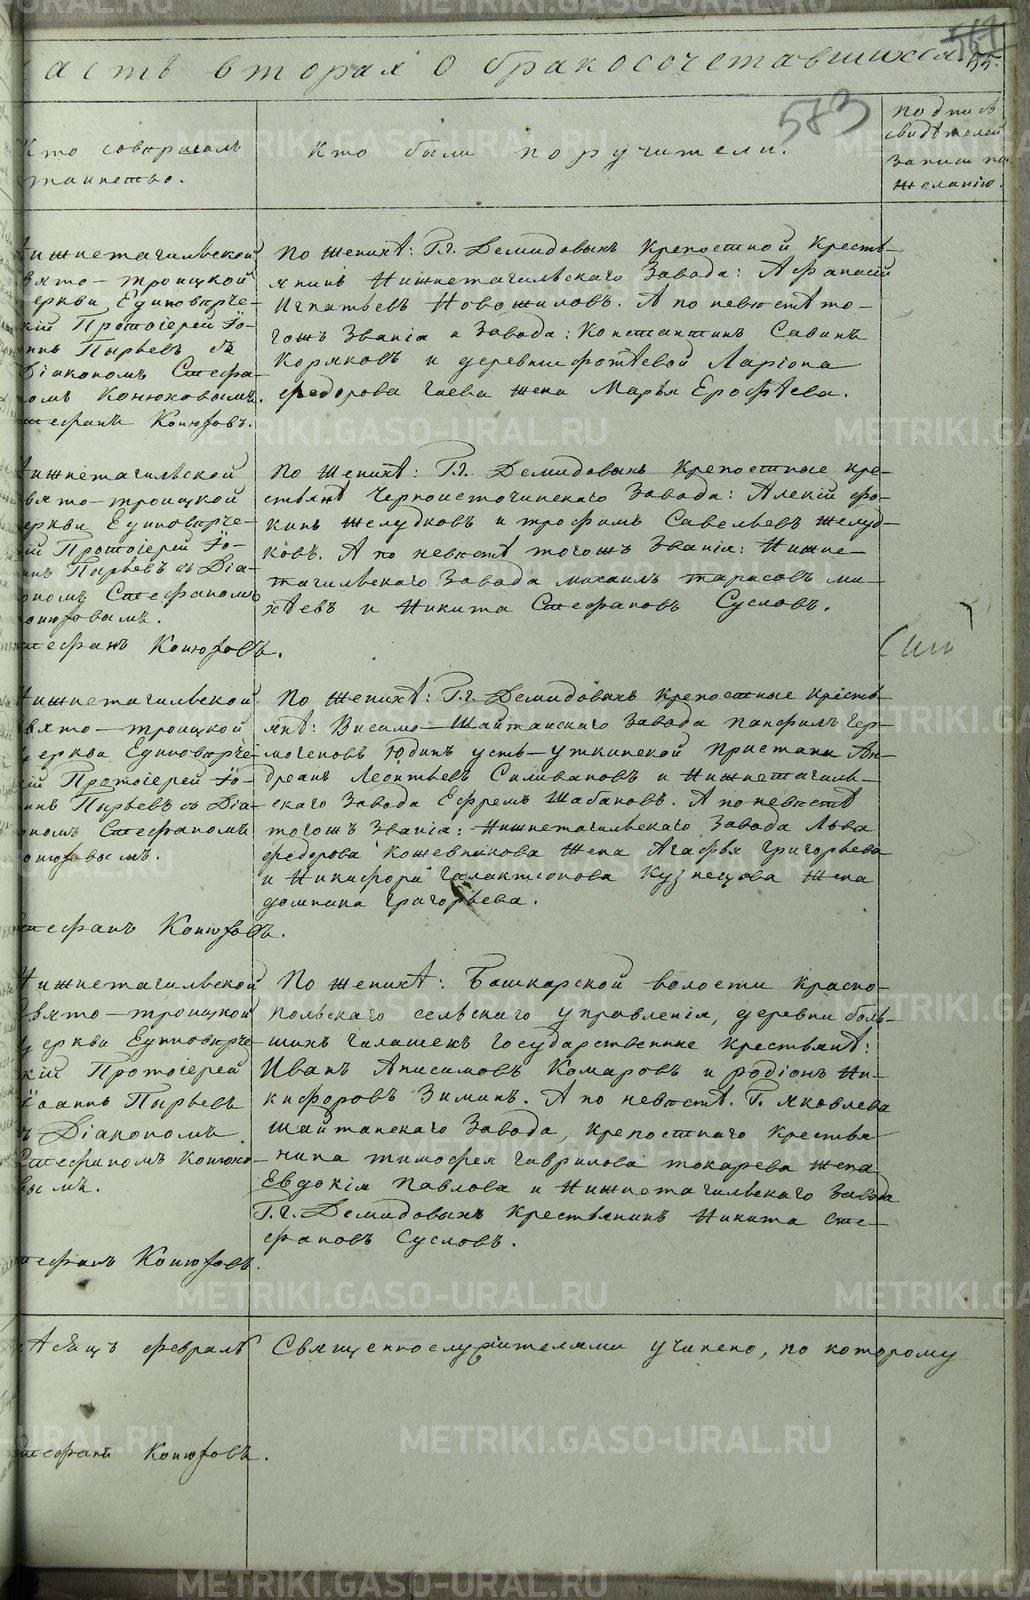 асть вторая о бракосочетавшихся
55.
583
Кто совершалъ
таинство.
Кто были поручители.
подпись
свидѣтелей
записи по
желанію.
нижнетагильской
вято-троицкой
еркви Единовѣрче-
кій Протоіерей Іо-
ннъ Пырьевъ съ
Діакономъ Стефа-
омъ Конюховымъ.
тефанъ Конюховъ.
По женихѣ: Г.г. Демидовыхъ крепостной Кресть-
янинъ Нижнетагильскаго Завода: Афанасій
Игнатьевъ Новожиловъ. А по невѣстѣ то-
гожъ Званія и Завода: Константинъ Савинъ
Коряковъ и деревни фотѣевой Ларіона
федорова гаева жена Марья Ерофѣева.
нижнетагильской
вято-троицкой
еркви Единовѣрче-
ій Протоіерей Іо-
ннъ Пырьевъ съ Діа-
ономъ Стефаномъ
онюховымъ.
тефанъ Конюховъ.
По женихѣ: Г.г. Демидовыхъ Крепостные кре-
стьянѣ Черноисточинскаго Завода: Алексій фо-
кинъ желудковъ и трофимъ Савельевъ желуд-
ковъ. А по невѣстѣ тогожъ Званія: Нижне-
тагильскаго Завода михаилъ тарасовъ ми-
хѣевъ и Никита Стефановъ Сусловъ.
Нижнетагильской
вято-троицкой
церкви Единовѣрче-
ій Протоіерей Іо-
ннъ Пырьевъ съ Діа-
ономъ Стефаномъ
онюховымъ.
тефанъ Конюховъ.
По женихѣ: Г.г. Демидовыхъ крепостные кресть-
янѣ: Висимо-Шайтанскаго Завода панфилъ Гер-
могеновъ Юдинъ усть-уткинской пристани Ан-
дреанъ Леонтьевъ Силивановъ и Нижнетагиль-
скаго Завода Ефремъ Шабановъ. А по невѣстѣ
тогожъ Званія: Нижнетагильскаго Завода Льва
федорова кожевникова жена Агафья григорьева
и Никифора галактіонова Кузнецова жена
домнина григорьева.
Нижнетагильской
вято-троицкой
церкви Единовѣрче-
кій Протоіерей
Іоаннъ Пырьевъ
ъ Діакономъ
Стефаномъ Конюхо-
вымъ.
тефанъ Конюховъ.
По женихѣ: Башкарской волости красно-
польскаго сельскаго управленія, деревни боль-
шихъ галашекъ государственные крестьянѣ:
Иванъ Анисимовъ Комаровъ и родіонъ Ни-
кифоровъ Зиминъ. А по невѣстѣ. Г. яковлева
шайтанскаго Завода, крепостнаго крестья-
нина тимофея гаврилова токарева жена
Евдокія Павлова и Нижнетагильскаго Завода
Г.г. Демидовыхъ крестьянинъ Никита Сте-
фановъ Сусловъ.
мѣсяцъ февраль Священнослужителями учинено, по которому
тефанъ Конюховъ.
METRIKI.GASO-URAL.RU